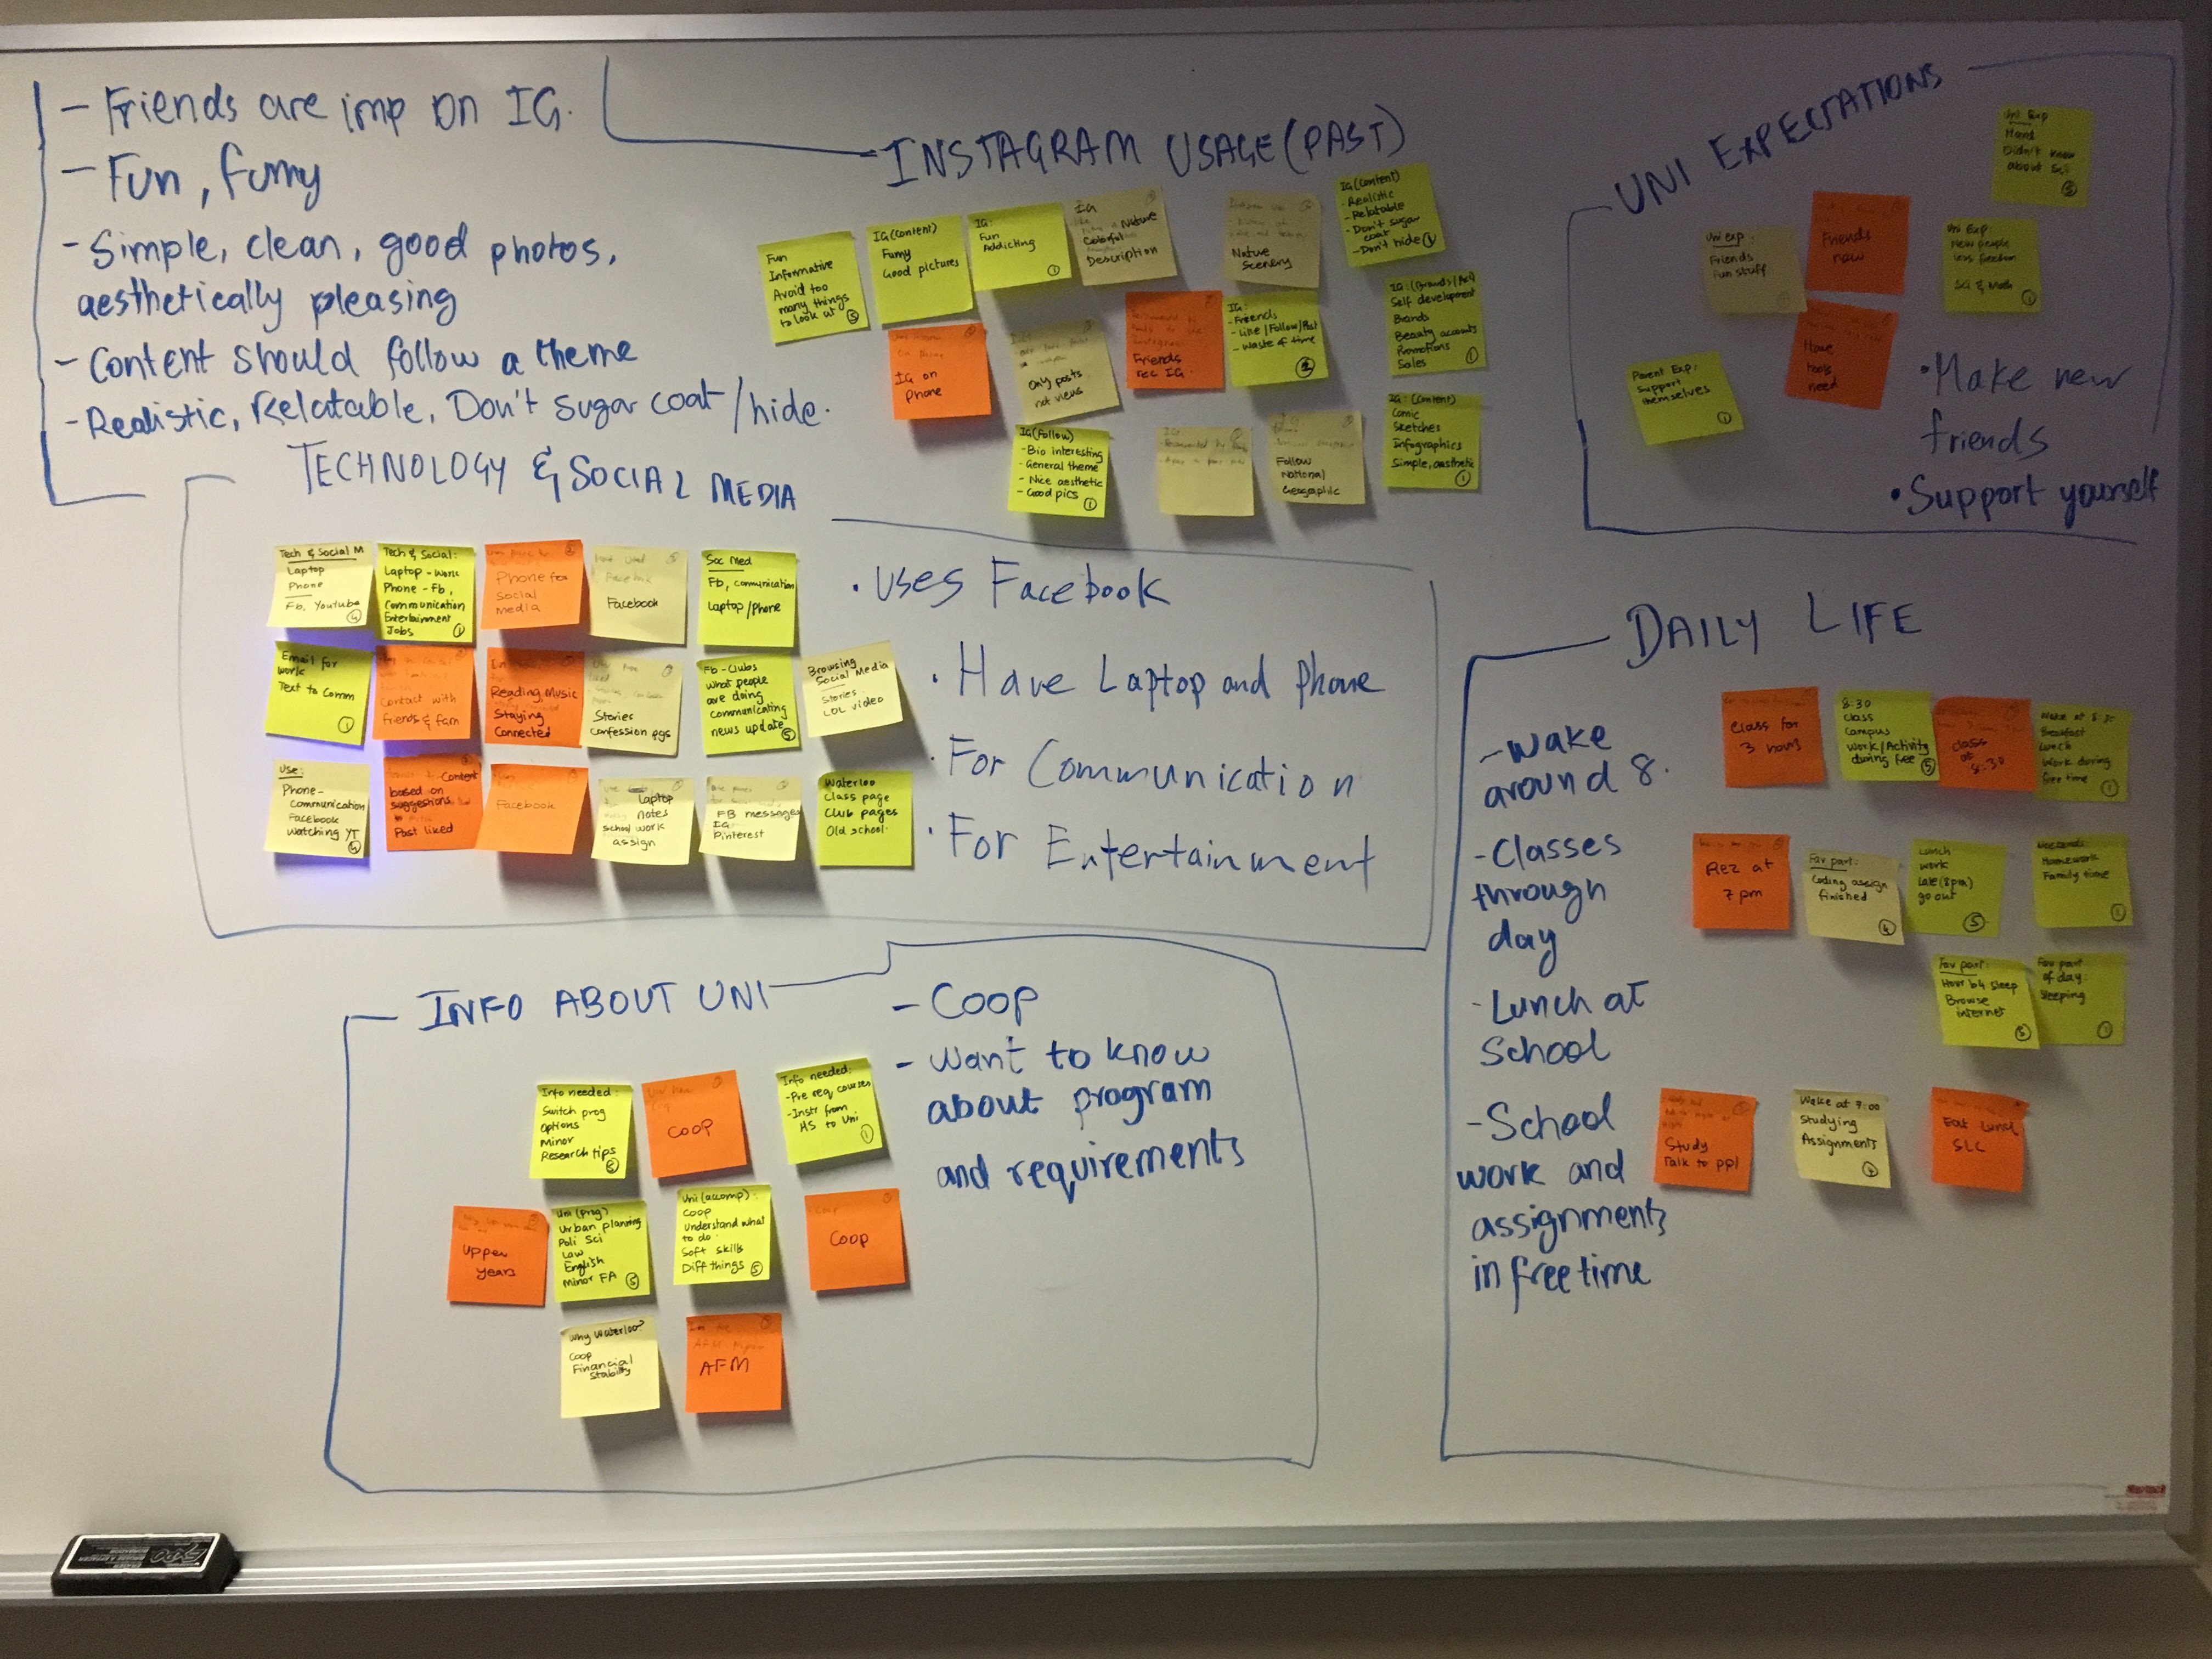 - Friends are imp on IG.
- Fun, funny
- Simple, clean, good photos,
aesthetically pleasing
- Content should follow a theme
- Realistic, Relatable, Don't sugar coat/hide.
INSTAGRAM USAGE (PAST)
Fun
Informative
Avoid too
many things
to look at 5
IG (content)
Funny
Good pictures
IG:
Fun
Addicting
1
IG
Nature
Colorful
Description
Nature
Scenery
IG (content)
- Realistic
- Relatable
- Don't sugar
coat
- Don't hide 1
IG on
phone
Only posts
not views
Friends
rec IG.
IG:
- Friends
- Like/Follow/Post
- Waste of time
2
Self development
Brands
Beauty accounts
Promotions
Sales
1
IG (Follow)
- Bio interesting
- General theme
- Nice aesthetic
- Good pics 1
Follow
National
Geographic
IG: (content)
Comic
Sketches
Infographics
Simple, aesthetic
1
UNI EXPECTATIONS
Uni Exp
Hard
Didn't know
about Sci
5
Uni exp:
Friends
Fun stuff
Friends
now
Uni Exp
New people
less freedom
Sci & Math
1
Parent Exp:
Support
themselves
1
Have
tools
need
• Make new
friends
• Support yourself
TECHNOLOGY & SOCIAL MEDIA
Tech & Social M
Laptop
Phone
Fb, Youtube
4
Tech & Social:
Laptop - Work
Phone - Fb,
Communication
Entertainment
Jobs 1
Phone for
Social
Media
Facebook
Soc Med
Fb, communication
Laptop/Phone
Email for
work
Text to Comm
1
Contact with
friends & fam
Reading, Music
Staying
Connected
Stories
confession pgs
Fb - Clubs
What people
are doing
communicating
news update 5
Browsing
Social Media
Stories
LOL video
Use:
Phone -
communication
Facebook
Watching YT
4
Content
based on
suggestions
Past liked
Facebook
Laptop
notes
school work
assign
FB messages
IG
Pinterest
Waterloo
Class page
Club pages
Old school.
• Uses Facebook
• Have Laptop and phone
• For Communication
• For Entertainment
DAILY LIFE
- Wake
around 8.
- Classes
through
day
- Lunch at
School
- School
work and
assignments
in free time
Class for
3 hours
8:30
class
Campus
Work/Activity
during free 5
class
at
8:30
Breakfast
Lunch
Work during
free time
1
Rez at
7 pm
Fav part:
Coding assign
finished
4
Lunch
work
Late (8pm)
go out
5
Weekends
Homework
Family time
Fav part:
Hour b4 sleep
Browse
internet
5
Fav part
of day:
Sleeping
Study
Talk to ppl
Wake at 7:00
Studying
Assignments
4
Eat Lunch
SLC
INFO ABOUT UNI
- Coop
- Want to know
about program
and requirements
Info needed:
Switch prog
options
Minor
Research tips
5
Coop
Info needed:
- Pre req courses
- Instr from
HS to Uni
1
Upper
years
Uni (prog)
Urban planning
Poli Sci
Law
English
Minor FA 5
Uni (accomp):
Coop
Understand what
to do.
Soft skills
Diff things 5
Coop
Why Waterloo?
Coop
Financial
Stability
AFM
EXPO